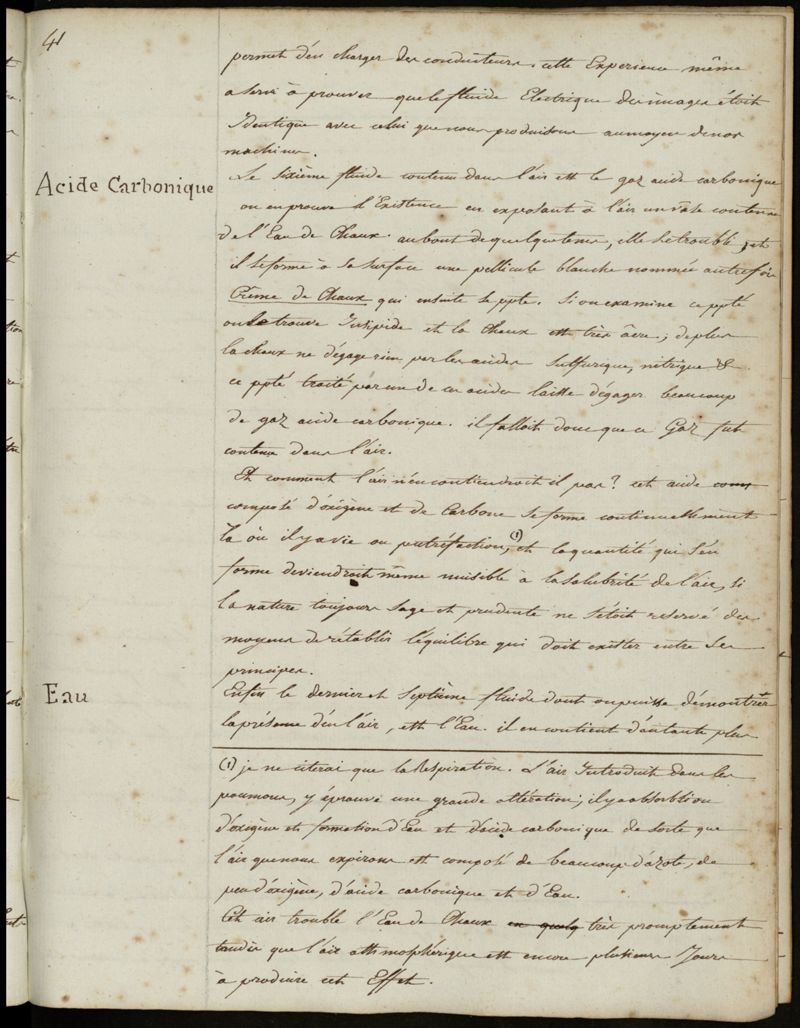 41
permet d'en charger des conducteurs. cette Experience même
a servi à prouver que le fluide Electrique des nuages étoit
Identique avec celui que nous produisons au moyen de nos
machines.
Acide Carbonique
Le sixième fluide contenu dans l'air est le gaz acide carbonique
on en prouve l'Existence en exposant à l'air un vase contenant
de l'Eau de Chaux. au bout de quelque tems, elle se trouble, et
il se forme à sa surface une pellicule blanche nommée autrefois
Crème de Chaux qui ensuite se ppte. Si on examine ce ppté
on le trouve Insipide et la Chaux est très âcre; de plus
la chaux ne dégage rien par les acides sulfurique, nitrique &
ce ppté traité par un de ces acides laisse dégager beaucoup
de gaz acide carbonique. il falloit donc que ce Gaz fut
contenu dans l'air.
Et comment l'air n'en contiendroit il pas? cet acide
composé d'oxigène et de Carbone se forme continuellement
là où il y a vie ou putréfaction, (1) et la quantité qui s'en
forme deviendroit même nuisible à la salubrité de l'air, si
la nature toujours sage et prudente ne s'étoit reservé des
moyens de rétablir l'équilibre qui doit exister entre ses
principes.
Eau
Enfin le dernier et Septième fluide dont on puisse démontrer
la présence dans l'air, est l'Eau. il en contient d'autant plus
(1) je ne citerai que la Respiration. L'air Introduit dans les
poumons, y éprouve une grande altération; il y a absorbtion
d'oxigène et formation d'Eau et d'acide carbonique de sorte que
l'air que nous expirons est composé de beaucoup d'azote, de
peu d'oxigène, d'acide carbonique et d'Eau.
Cet air trouble l'Eau de Chaux en quelq très promptement
tandis que l'air athmosphérique est encore plusieurs Jours
à produire cet Effet.